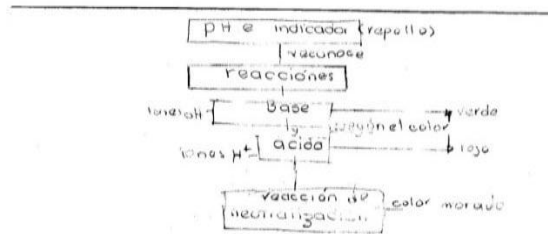 pH e indicador (repollo)
recunoce
reacciones
Iones OH Base verde
y según el color
Iones H+ acido rojo
reacción de
neutralización color morado